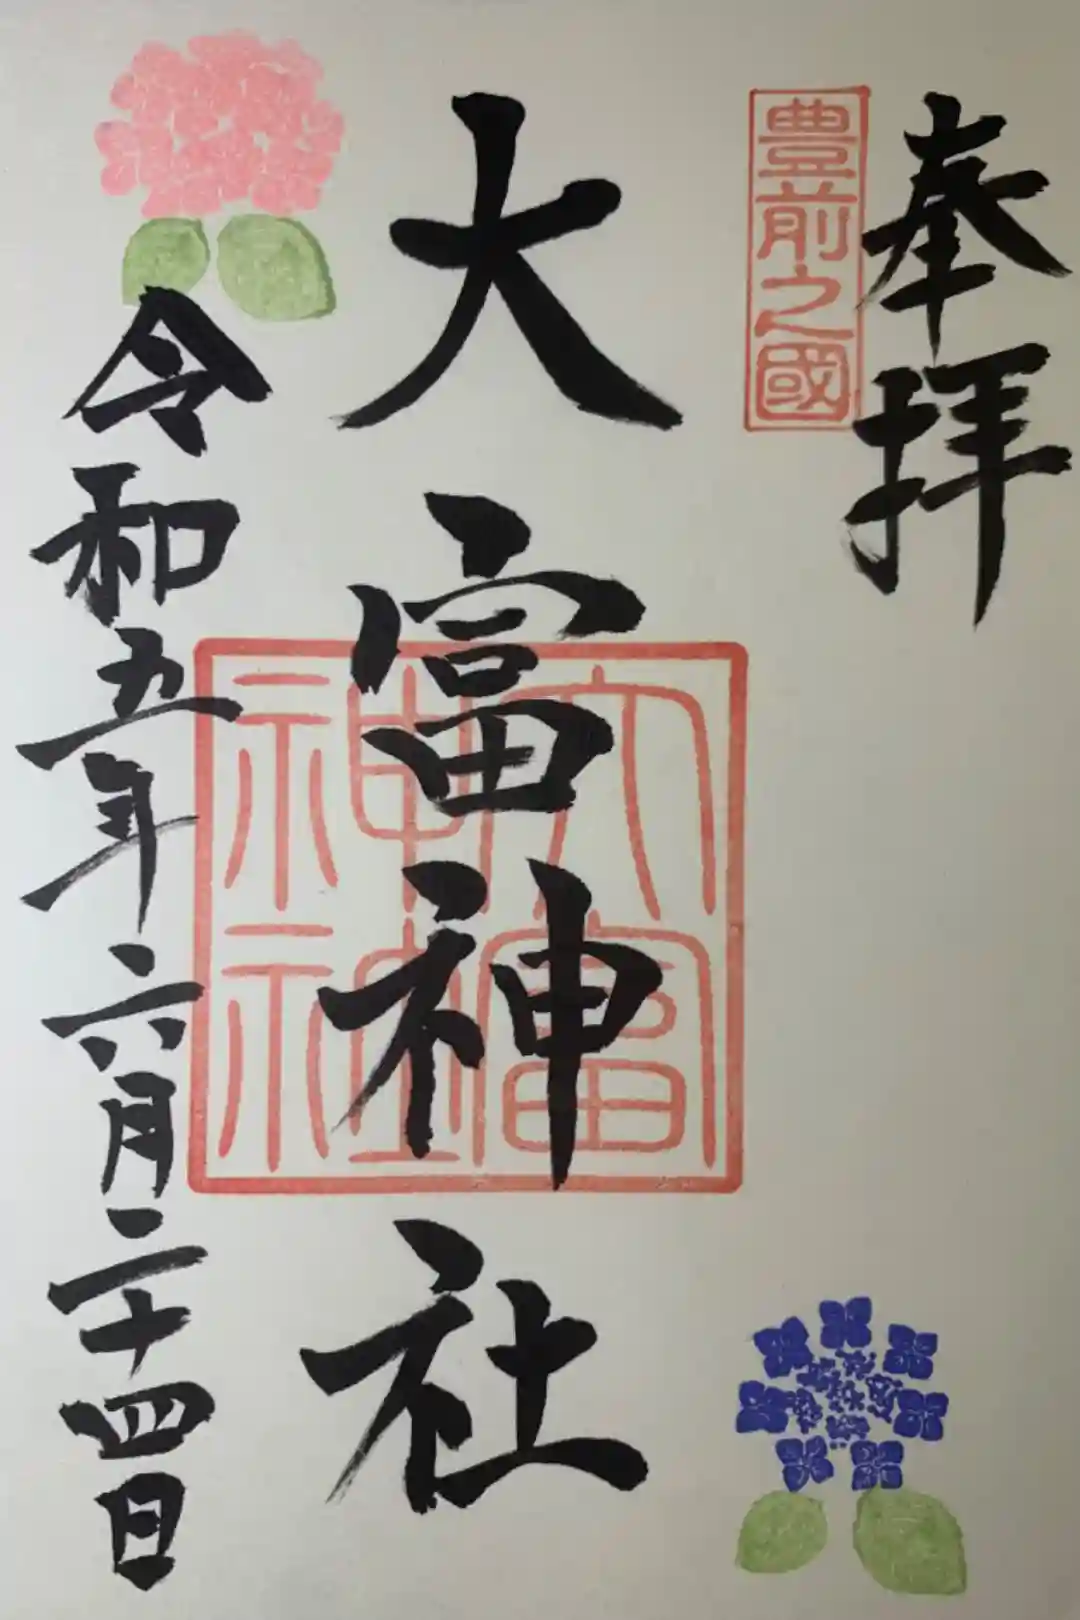 奉拝
豊前之國
大富神社
大富
神社
令和五年六月二十四日